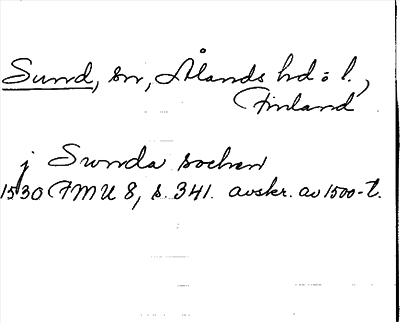 Sund, sn, Ålands hd: l.,
Finland
j Swnda sochen
1530 FMU 8, s. 341. avskr. av 1500-t.